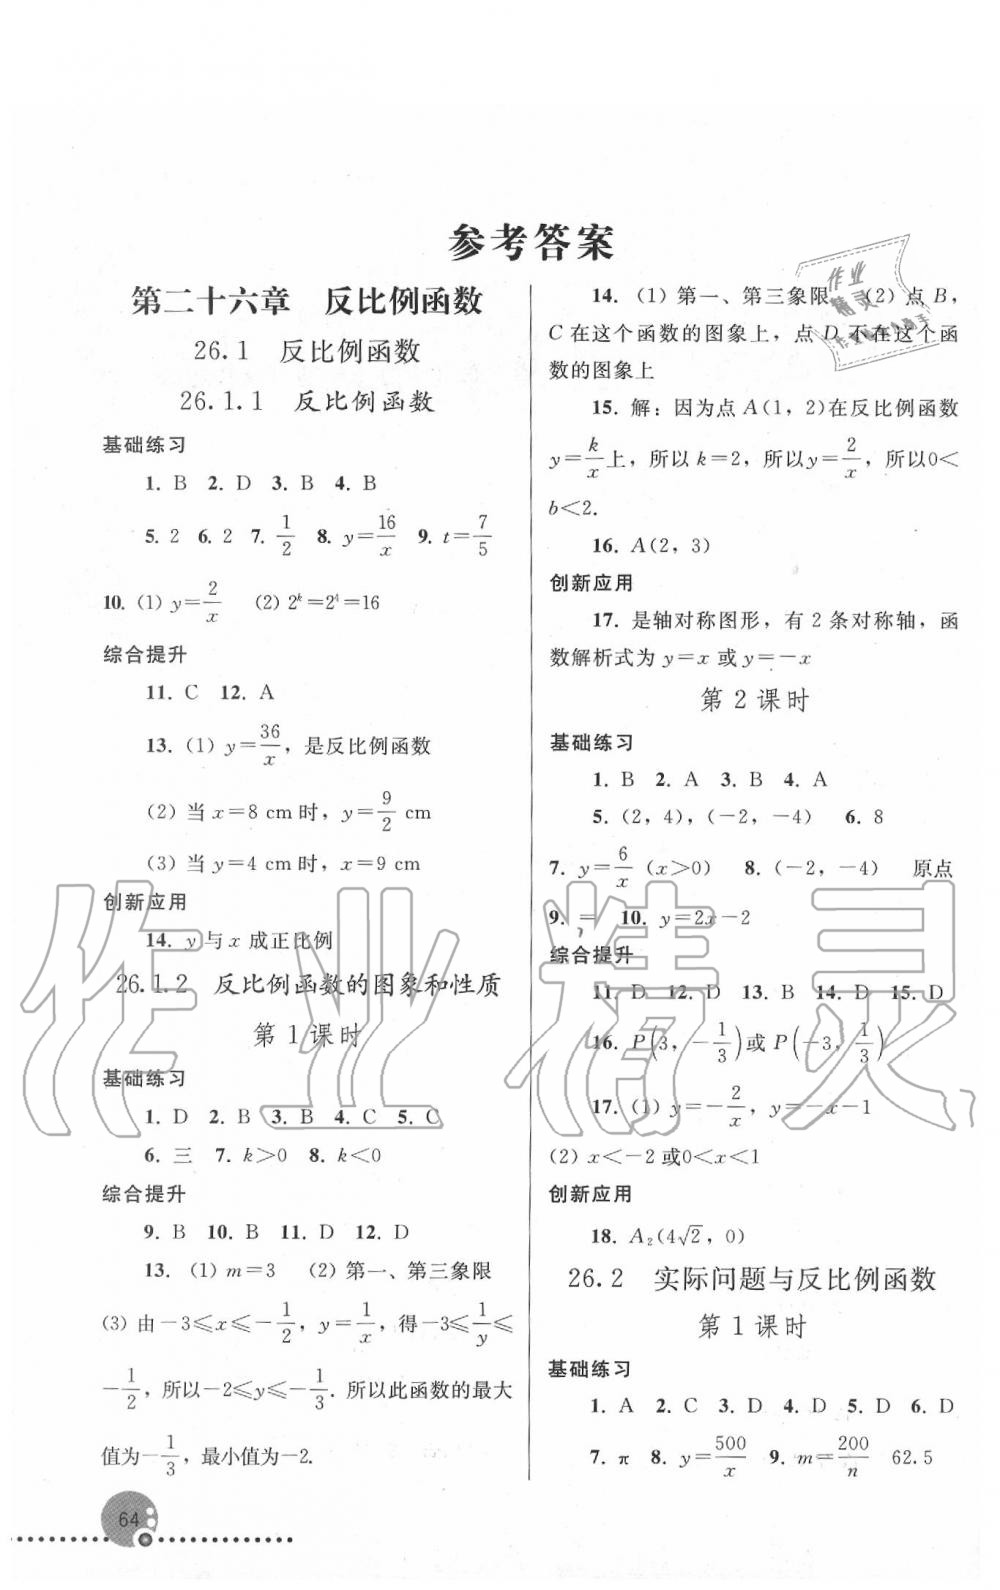 参考答案
第二十六章　反比例函数
26.1　反比例函数
26.1.1　反比例函数
基础练习
1. B　2. D　3. B　4. B
5. 2　6. 2　7. 1/2　8. y=16/x　9. t=7/5
10. (1) y=2/x　(2) 2^k=2^4=16
综合提升
11. C　12. A
13. (1) y=36/x，是反比例函数
(2) 当 x=8 cm 时，y=9/2 cm
(3) 当 y=4 cm 时，x=9 cm
创新应用
14. y 与 x 成正比例
26.1.2　反比例函数的图象和性质
第 1 课时
基础练习
1. D　2. B　3. B　4. C　5. C
6. 三　7. k＞0　8. k＜0
综合提升
9. B　10. B　11. D　12. D
13. (1) m=3　(2) 第一、第三象限
(3) 由－3≤x≤－1/2，y=1/x，得－3≤1/y≤
－1/2，所以－2≤y≤－1/3. 所以此函数的最大
值为－1/3，最小值为－2.
64
14. (1) 第一、第三象限　(2) 点 B，
C 在这个函数的图象上，点 D 不在这个函
数的图象上
15. 解：因为点 A(1，2)在反比例函数
y=k/x上，所以 k=2，所以y=2/x，所以0＜
b＜2.
16. A(2，3)
创新应用
17. 是轴对称图形，有 2 条对称轴，函
数解析式为 y=x 或 y=－x
第 2 课时
基础练习
1. B　2. A　3. B　4. A
5. (2，4)，(－2，－4)　6. 8
7. y=6/x (x＞0)　8. (－2，－4)　原点
9. =　10. y=2x－2
综合提升
11. D　12. D　13. B　14. D　15. D
16. P(3，－1/3)或 P(－3，1/3)
17. (1) y=－2/x，y=－x－1
(2) x＜－2 或0＜x＜1
创新应用
18. A₂(4√2，0)
26.2　实际问题与反比例函数
第 1 课时
基础练习
1. A　2. C　3. D　4. D　5. D　6. D
7. π　8. y=500/x　9. m=200/n　62.5
作业
精灵
作业精灵